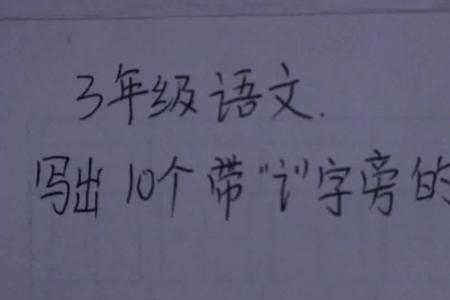 3年级语文.
写出10个带"讠"字旁的